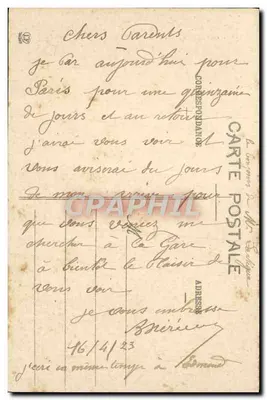 chers Parents
je par aujourd'hui pour
Paris pour une quinzaine
de jours et au retour
j'airai vous voir
vous aviserai du jours
de mon arrivé pour
que vous veniez me
chercher à la Gare
à bientôt le plaisir de
vous voir
je vous embrasse
16/4/23
j'écri en même temps a Edmond
CORRESPONDANCE
CARTE POSTALE
ADRESSE
CPAPHIL